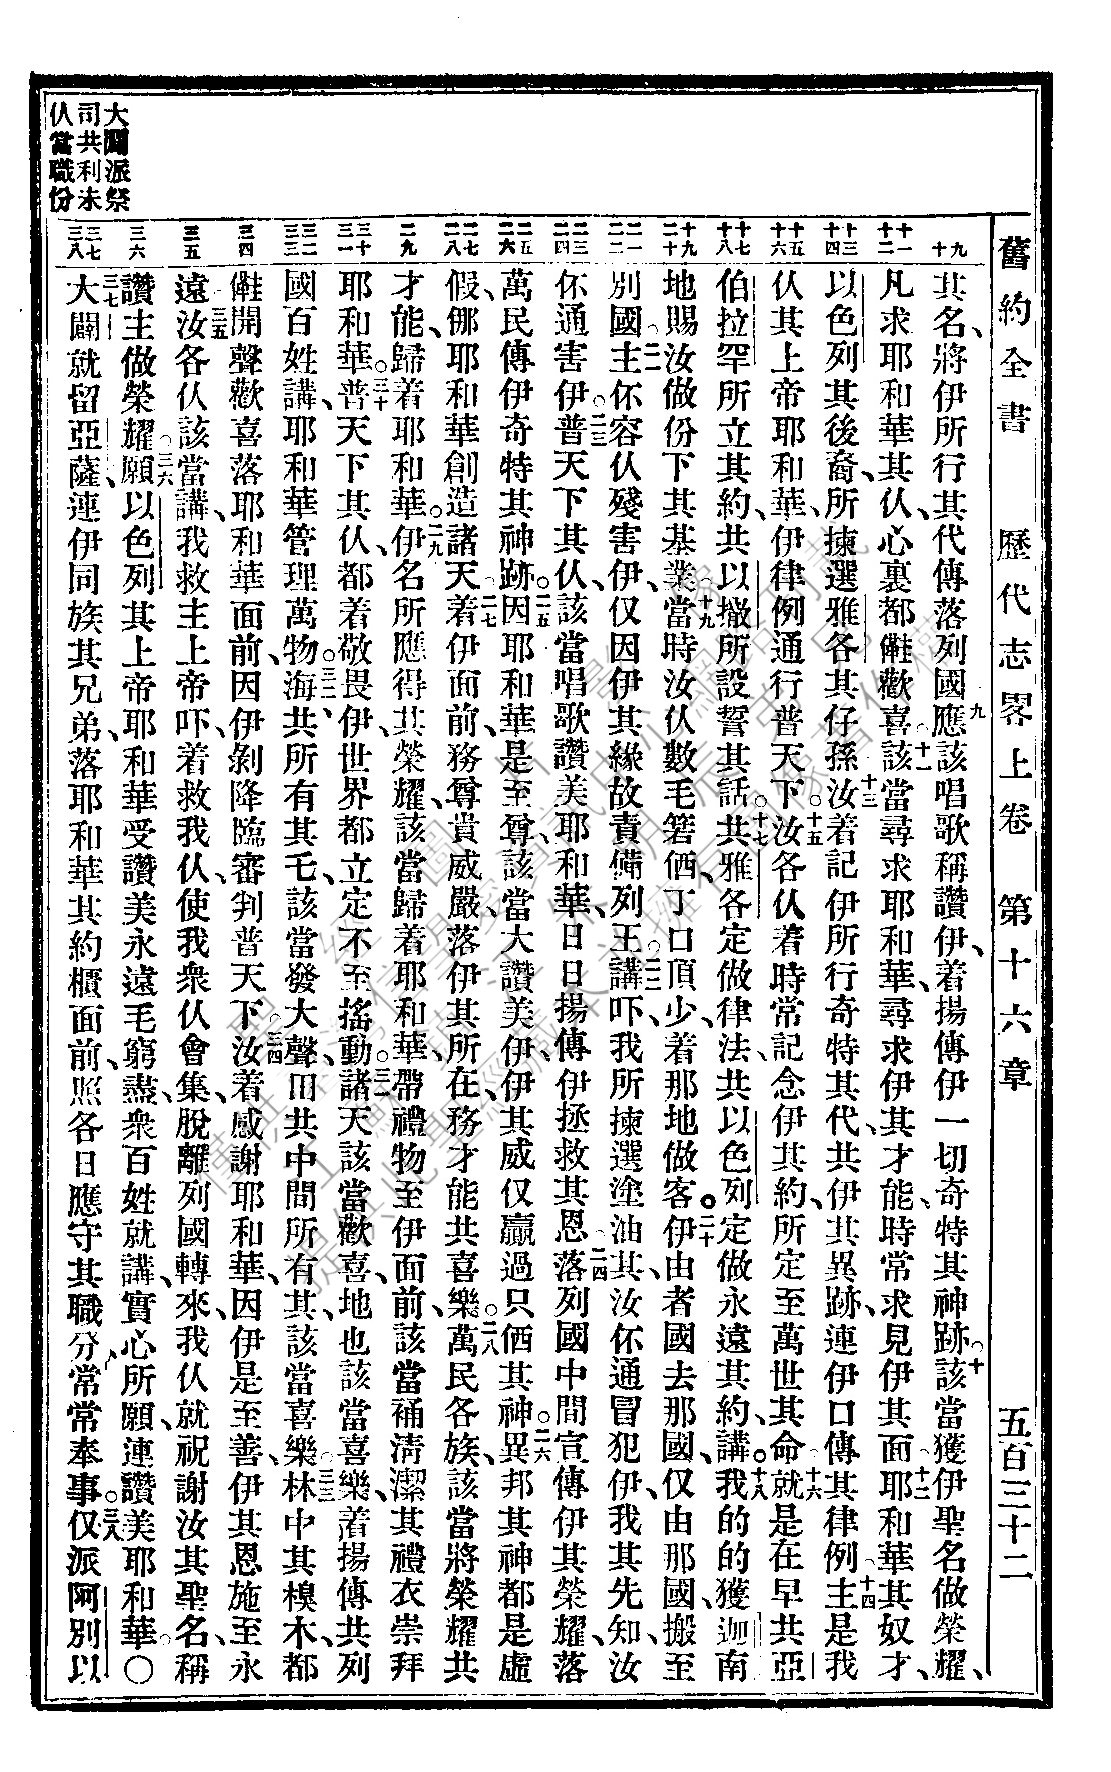 舊約全書 歷代志畧上卷 第十六章 五百三十二
九 十
其名、將伊所行其代傳落列國應該唱歌稱讚伊、着揚傳伊一切奇特其神跡。該當獲伊聖名做榮耀、
十一 十二
凡求耶和華其仈、心裏都歡喜。該當尋求耶和華、尋求伊其才能、時常求見伊其面。耶和華其奴才
十三 十四
以色列其後裔、所揀選雅各其仔孫、汝着記伊所行奇特其代共伊其異跡、連伊口傳其律例。主是我
十五 十六
仈其上帝耶和華、伊律例通行普天下。汝各仈着時常記念伊其約、所定至萬世其命。就是在早共亞
十七 十八
伯拉罕所立其約、共以撒所設誓其話。共雅各定做律法、共以色列定做永遠其約。講、我的的獲迦南
十九 二十
地賜汝做份下其基業。當時汝仈數毛箬㑚、丁口頂少、着那地做客。伊由者國去那國、仅由那國搬至
二一 二二
別國。主伓容仈殘害伊、仅因伊其緣故責備列王。講、吓、我所揀選塗油其、汝伓通冒犯伊、我其先知、汝
二三 二四
伓通害伊。普天下其仈、該當唱歌讚美耶和華、日日揚傳伊拯救其恩。落列國中間宣傳伊其榮耀、落
二五 二六
萬民傳伊奇特其神跡。因耶和華是至尊、該當大讚美伊、伊其威仅贏過只㑚其神。異邦其神都是虛
二七 二八
假、㑚耶和華創造諸天。着伊面前務尊貴威嚴、落伊其所在務才能共喜樂。萬民各族、該當將榮耀共
二九
才能、歸着耶和華。伊名所應得其榮耀、該當歸着耶和華、帶禮物至伊面前、該當補清潔其禮衣崇拜
三十 三一
耶和華。普天下其仈、都着敬畏伊、世界都立定不至搖動。諸天該當歡喜、地也該當喜樂、着揚傳共列
三二 三三
國百姓講、耶和華管理萬物。海共所有其乇、該當發大聲、田共中間所有其、該當喜樂。林中其樹木、都
三四
開聲歡喜落耶和華面前、因伊剝降臨審判普天下。汝着感謝耶和華、因伊是至善、伊其恩施至永
三五
遠。汝各仈該當講、我救主上帝吓、着救我仈、使我衆仈會集、脫離列國轉來、我仈就祝謝汝其聖名、稱
三六
讚主做榮耀。願以色列其上帝耶和華受讚美永遠毛窮盡、衆百姓就講、實心所願、連讚美耶和華。〇
三七 三八
大闢就留亞薩、連伊同族其兄弟、落耶和華其約櫃面前、照各日應守其職分、常常奉事。仅派阿別以
大闢派祭
司共利未
仈當職份